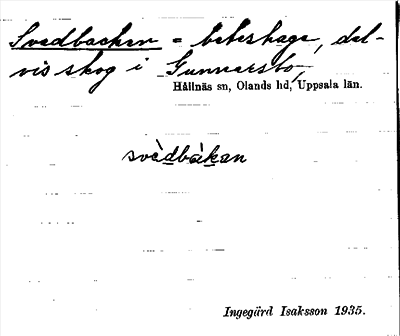 Svedbacken = beteshage, del-
vis skog i Gunnarsbo,
Hållnäs sn, Olands hd, Uppsala län.
svèdbàkan
Ingegärd Isaksson 1935.